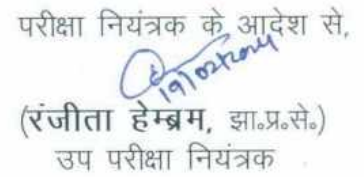 परीक्षा नियंत्रक के आदेश से,
19/02/2024
(रंजीता हेम्ब्रम, झा॰प्र॰से॰)
उप परीक्षा नियंत्रक